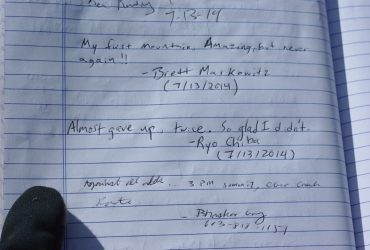 Andy
7-13-14
My first mountain. Amazing, but never
again!!
- Brett Maskowitz
(7/13/2014)
Almost gave up, twice. So glad I didn't.
- Ryo Chiba
(7/13/2014)
Against all odds... 3 PM summit,